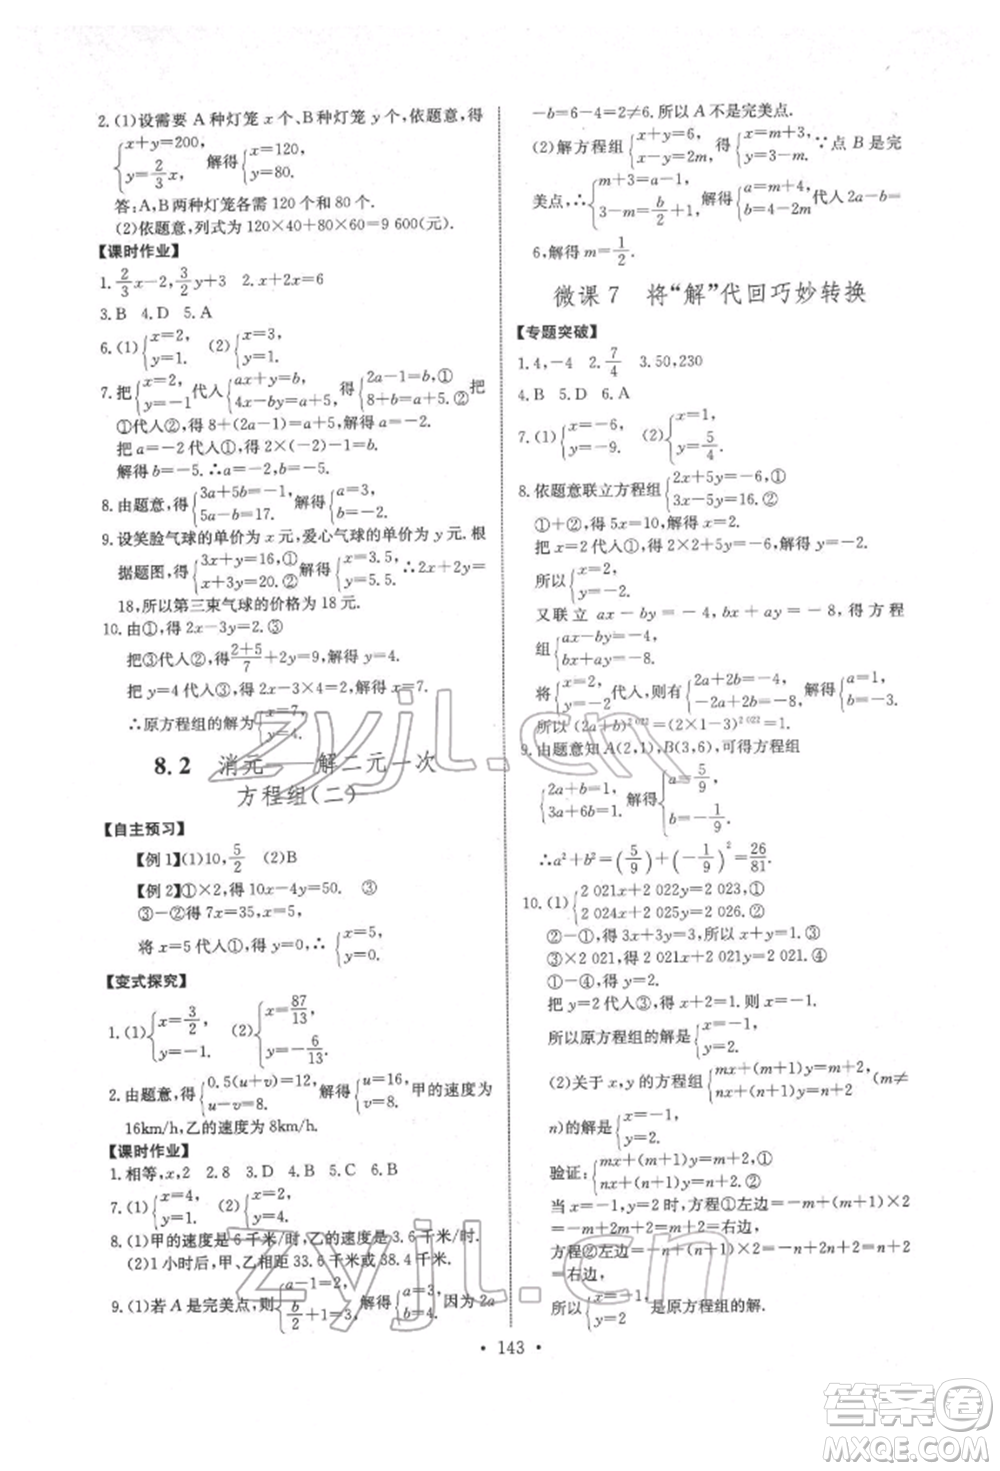 2. (1)设需要 A 种灯笼 x 个、B种灯笼 y 个,依题意,得
{x+y=200, y=2/3 x, 解得{x=120, y=80.
答:A,B两种灯笼各需 120 个和 80 个.
(2)依题意,列式为120×40+80×60=9 600(元).
【课时作业】
1. 2/3 x-2, 3/2 y+3  2. x+2x=6
3. B  4. D  5. A
6. (1){x=2, y=1.  (2){x=3, y=1.
7. 把{x=2, y=-1代入{2x+y=b, 4x-by=a+5, 得{2a-1=b,① 8+b=a+5.②
①代入②,得 8+(2a-1)=a+5,解得 a=-2.
把 a=-2 代入①,得 2×(-2)-1=b.
解得 b=-5.∴a=-2,b=-5.
8. 由题意,得{3a+5b=-1, 5a-b=17. 解得{a=3, b=-2.
9. 设笑脸气球的单价为 x 元,爱心气球的单价为 y 元.根
据题图,得{3x+y=16,① x+3y=20.② 解得{x=3.5, y=5.5. ∴2x+2y=
18,所以第三束气球的价格为 18 元.
10. 由①,得 2x-3y=2.③
把③代入②,得 (2+5)/7+2y=9,解得 y=4.
把 y=4 代入③,得 2x-3×4=2,解得 x=7.
∴原方程组的解为{x=7, y=4.
8.2 消元——解二元一次
方程组(二)
【自主预习】
【例 1】(1)10, 5/2  (2)B
【例 2】①×2,得 10x-4y=50.  ③
③-②得 7x=35,x=5,
将 x=5 代入①,得 y=0,∴ {x=5, y=0.
【变式探究】
1. (1){x=3/2, y=-1.  (2){x=87/13, y=-6/13.
2. 由题意,得{0.5(u+v)=12, u-v=8. 解得{u=16, v=8. 甲的速度为
16km/h,乙的速度为8km/h.
【课时作业】
1. 相等,x,2  2. 8  3. D  4. C  5. C  6. B
7. (1){x=4, y=1.  (2){x=2, y=1.
8. (1)甲的速度是 6 千米/时,乙的速度是 3.6 千米/时.
(2)1 小时后,甲、乙相距 33.6 千米或 38.4 千米.
9. (1)若 A 是完美点,则{a-1=2, b/2+1=3, 解得{a=3, b=4. 因为 2a
-b=6-4=2≠6.所以 A 不是完美点.
(2)解方程组{x+y=6, x-y=2m, 得{x=m+3, y=3-m, ∵点 B 是完
美点,∴{m+3=a-1, 3-m=b/2+1, 解得{a=m+4, b=4-2m 代入 2a-b=
6,解得 m=1/2.
微课 7 将“解”代回巧妙转换
【专题突破】
1. 4,-4  2. 7/4  3. 50,230
4. B  5. D  6. A
7. (1){x=-6, y=-9.  (2){x=1, y=5/4.
8. 依题意联立方程组{2x+5y=-6,① 3x-5y=16.②
①+②,得 5x=10,解得 x=2.
把 x=2 代入①,得 2×2+5y=-6,解得 y=-2.
所以{x=2, y=-2.
又联立 ax-by=-4,bx+ay=-8,得方程
组{ax-by=-4, bx+ay=-8.
将{x=2, y=-2代入,则有{2a+2b=-4, -2a+2b=-8. 解得{a=1, b=-3.
所以(2a+b)²⁰²²=(2×1-3)²⁰²²=1.
9. 由题意知 A(2,1),B(3,6),可得方程组
{2a+b=1, 3a+6b=1. 解得{a=5/9, b=-1/9.
∴a²+b²=(5/9)²+(-1/9)²=26/81.
10. (1){2 021x+2 022y=2 023,① 2 024x+2 025y=2 026.②
②-①,得 3x+3y=3,所以 x+y=1.③
③×2 021,得 2 021x+2 021y=2 021.④
①-④,得 y=2.
把 y=2 代入③,得 x+2=1,解得 x=-1.
所以原方程组的解是{x=-1, y=2.
(2)关于 x,y 的方程组{mx+(m+1)y=m+2, nx+(n+1)y=n+2 (m≠
n)的解是{x=-1, y=2.
验证:{mx+(m+1)y=m+2,① nx+(n+1)y=n+2.②
当 x=-1,y=2 时,方程①左边=-m+(m+1)×2
=-m+2m+2=m+2=右边,
方程②左边=-n+(n+1)×2=-n+2n+2=n+2
=右边,
所以{x=-1, y=2 是原方程组的解.
• 143 •
zyjl.cn
zyjl.cn
答案圈
MXQE.COM